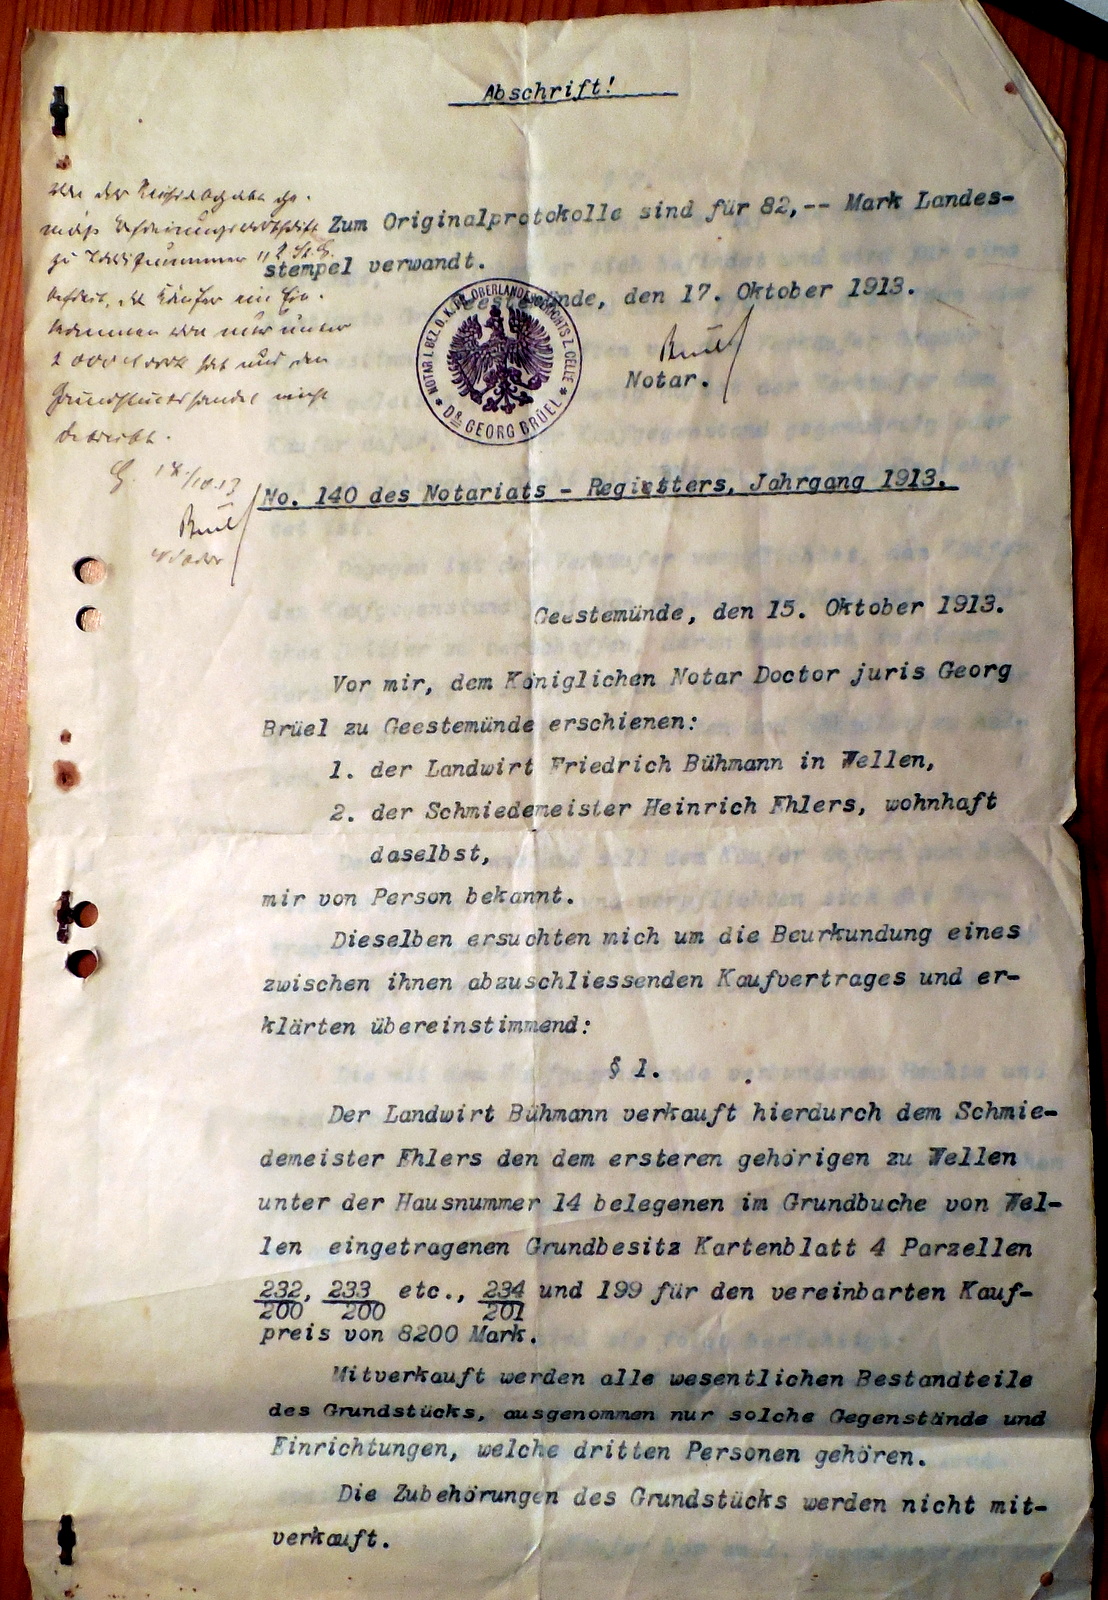 Abschrift!
Von der Reichsabgabe ge-
mäß Befreiungsvorschrift
zu Tarifnummer 11 R.St.G.
befreit, da Käufer ein Ein-
kommen von nur unter
2000 Mark hat und den
Grundstückshandel nicht
betreibt.
G. 18/10.13
Brüel
Notar
Zum Originalprotokolle sind für 82,-- Mark Landes-
stempel verwandt.
Geestemünde, den 17. Oktober 1913.
Brüel
Notar.
NOTAR I. BEZ. D. K. PR. OBERLANDESGERICHTS Z. CELLE
* DR. GEORG BRÜEL *
No. 140 des Notariats - Registers, Jahrgang 1913.
Geestemünde, den 15. Oktober 1913.
Vor mir, dem Königlichen Notar Doctor juris Georg
Brüel zu Geestemünde erschienen:
1. der Landwirt Friedrich Bühmann in Wellen,
2. der Schmiedemeister Heinrich Ehlers, wohnhaft
daselbst,
mir von Person bekannt.
Dieselben ersuchten mich um die Beurkundung eines
zwischen ihnen abzuschliessenden Kaufvertrages und er-
klärten übereinstimmend:
§ 1.
Der Landwirt Bühmann verkauft hierdurch dem Schmie-
demeister Ehlers den dem ersteren gehörigen zu Wellen
unter der Hausnummer 14 belegenen im Grundbuche von Wel-
len eingetragenen Grundbesitz Kartenblatt 4 Parzellen
232/200, 233/200 etc., 234/201 und 199 für den vereinbarten Kauf-
preis von 8200 Mark.
Mitverkauft werden alle wesentlichen Bestandteile
des Grundstücks, ausgenommen nur solche Gegenstände und
Einrichtungen, welche dritten Personen gehören.
Die Zubehörungen des Grundstücks werden nicht mit-
verkauft.